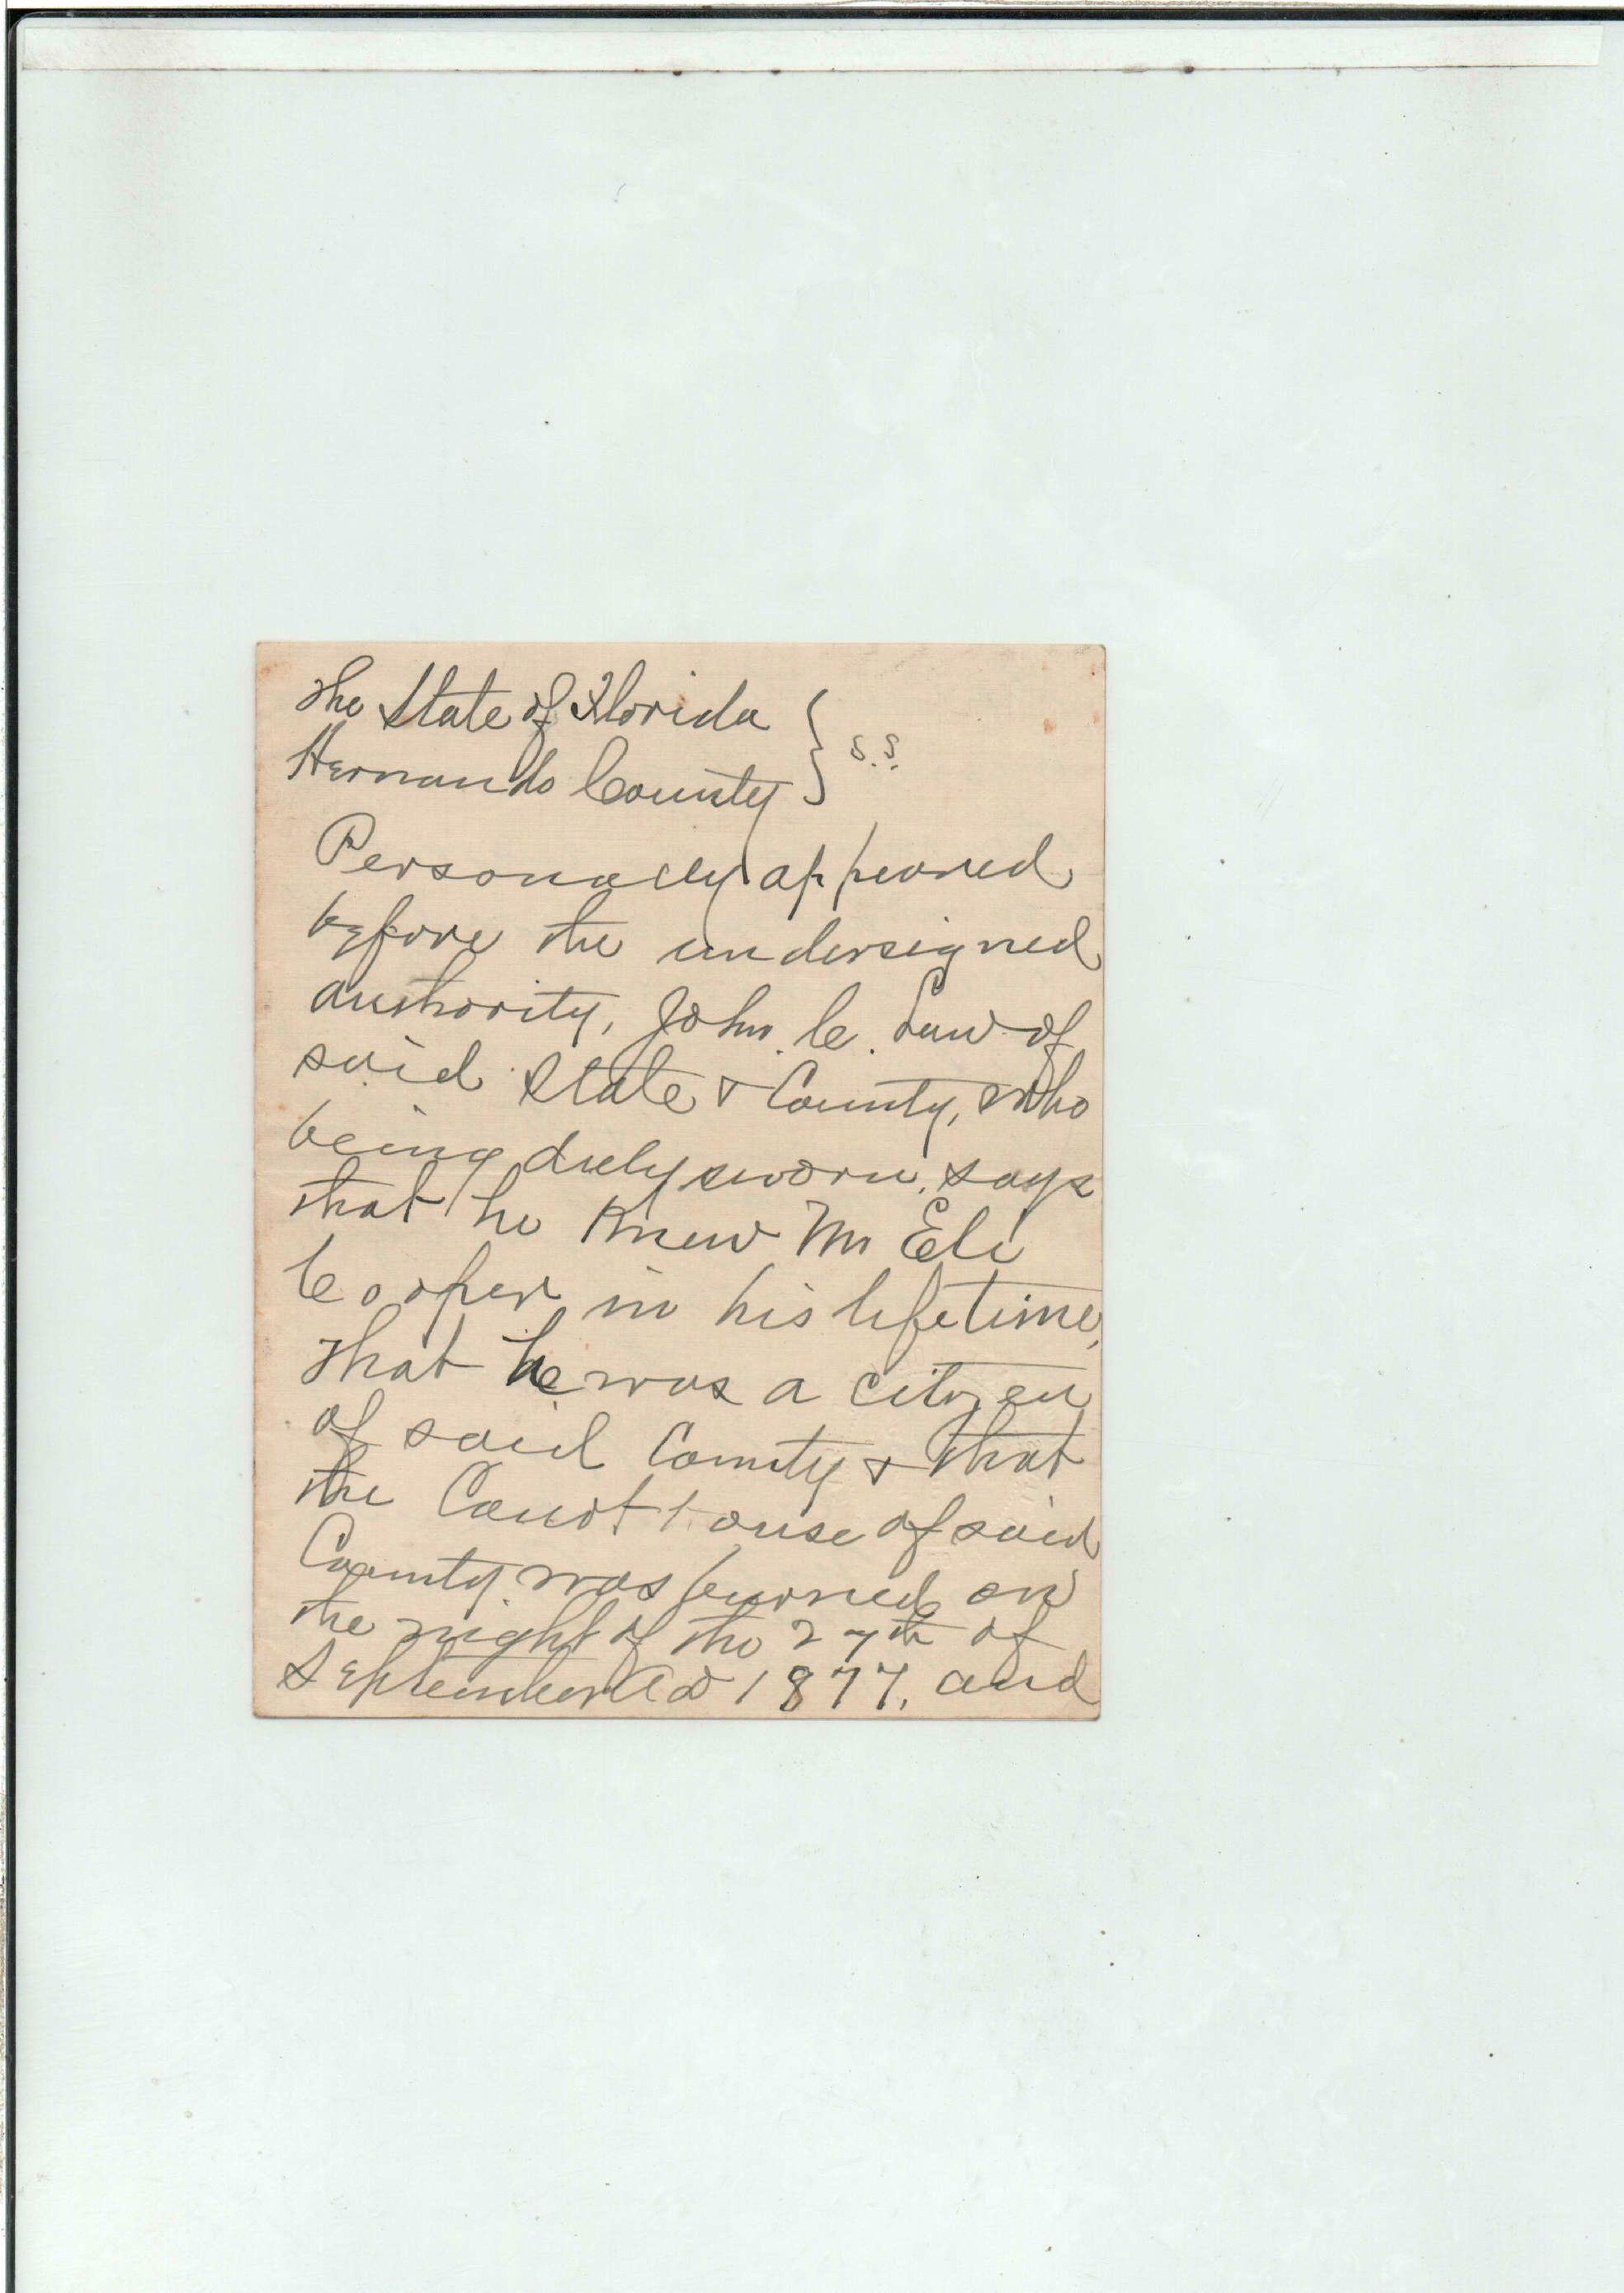 The State of Florida } S.S.
Hernando County
Personally appeared
before the undersigned
authority, John. C. Law of
said State & County, who
being duly sworn, says
that he knew Mr Eli
Cooper in his lifetime,
that he was a citizen
of said County & that
the Court House of said
County was burned on
the night of the 27th of
September AD 1877, and